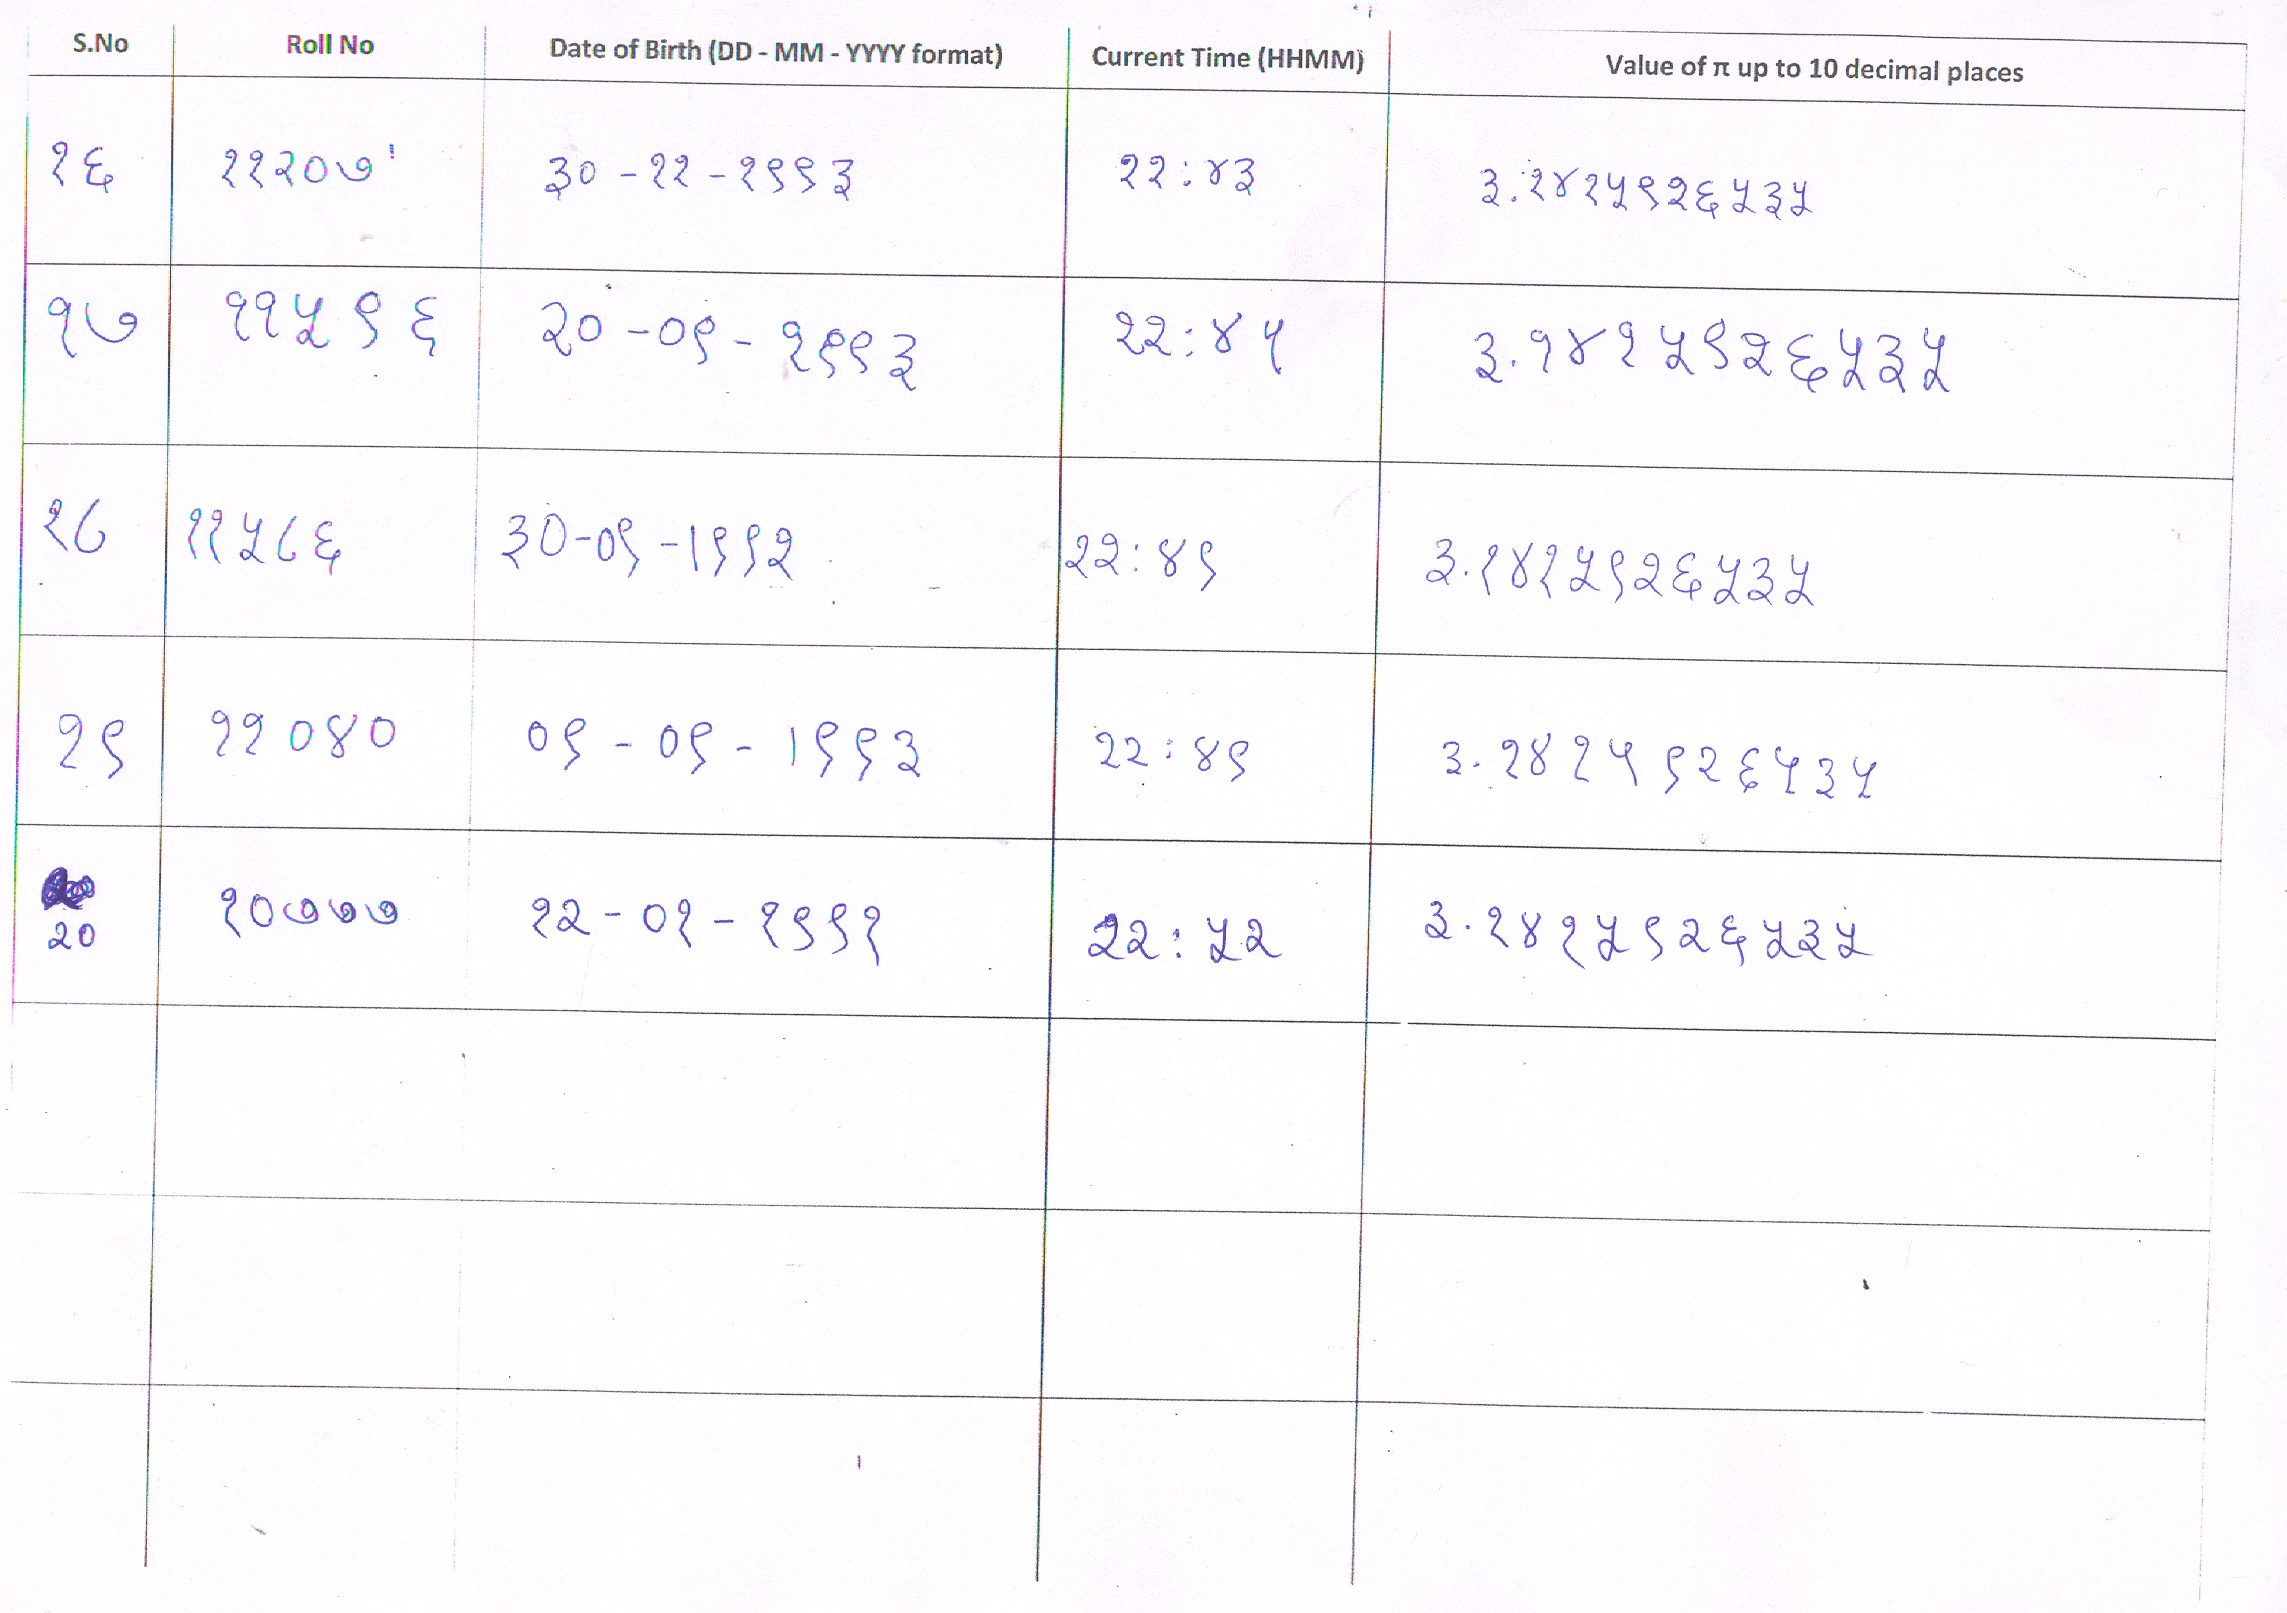 S.No Roll No Date of Birth (DD - MM - YYYY format) Current Time (HHMM) Value of π up to 10 decimal places
१६ ११२०७ ३०-११-१९९३ २२:४३ ३.१४१५९२६५३५
१७ ११५९६ २०-०९-१९९३ २२:४५ ३.१४१५९२६५३५
१८ ११५८६ ३०-०९-1९९२ २२:४९ ३.१४१५९२६५३५
१९ ११०४० ०९-०९-1९९३ २२:४९ ३.१४१५९२६५३५
२० १०७७७ १२-०१-१९९१ २२:५२ ३.१४१५९२६५३५